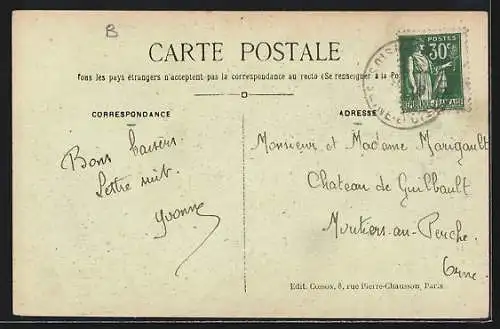 B
CARTE POSTALE
Tous les pays étrangers n'acceptent pas la correspondance au recto (Se renseigner à la Po
CORRESPONDANCE
ADRESSE
POSTES
30c
RÉPUBLIQUE FRANÇAISE
SEINE-&-OISE
Bons baisers
Lettre suit.
Yvonne
Monsieur et Madame Marigault
Chateau de Guilbault
Moutiers-au-Perche
Orne
Edit. Cossox, 8, rue Pierre-Chausson, Paris